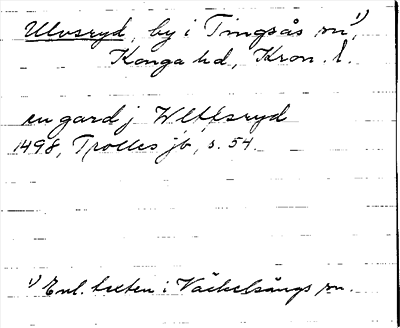 Ulvsryd, by i Tingsås sn¹⁾,
Konga hd, Kron. l.
en gard j Wlffsryd
1498, Trolles jb, s. 54.
¹⁾ Enl. texten i Väckelsångs sn.